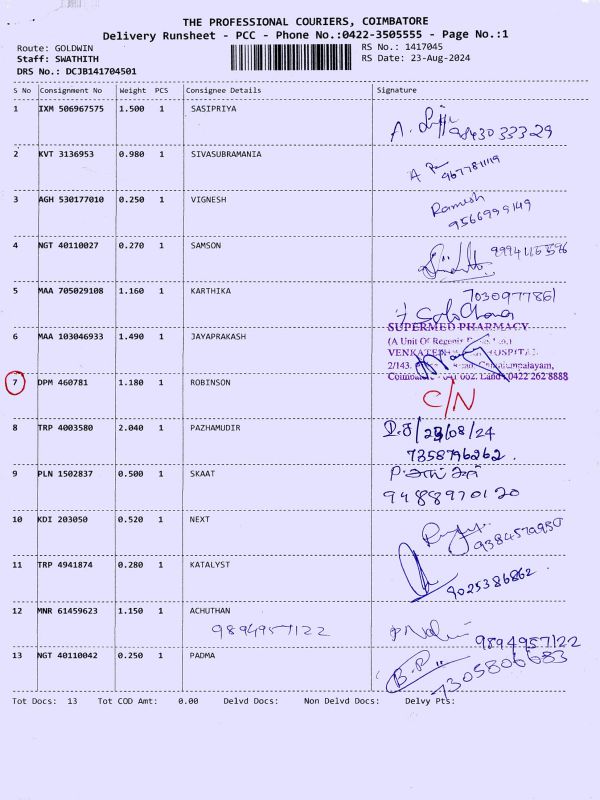 THE PROFESSIONAL COURIERS, COIMBATORE
Delivery Runsheet - PCC - Phone No.:0422-3505555 - Page No.:1
Route: GOLDWIN
Staff: SWATHITH
DRS No.: DCJB141704501
RS No.: 1417045
RS Date: 23-Aug-2024
S No Consignment No Weight PCS Consignee Details Signature
1 IXM 506967575 1.500 1 SASIPRIYA 9843033329
2 KVT 3136953 0.980 1 SIVASUBRAMANIA
3 AGH 530177010 0.250 1 VIGNESH Ramesh
9566999149
4 NGT 40110027 0.270 1 SAMSON
5 MAA 705029108 1.160 1 KARTHIKA 7030977861
SUPERMED PHARMACY
6 MAA 103046933 1.490 1 JAYAPRAKASH
(A Unit Of
HOSPITAL
2/143.
0422 262 8888
7 DPM 460781 1.180 1 ROBINSON C/N
8 TRP 4003580 2.040 1 PAZHAMUDIR /08/24
7358796262.
9 PLN 1502837 0.500 1 SKAAT
9488970120
10 KDI 203050 0.520 1 NEXT
11 TRP 4941874 0.280 1 KATALYST
9025386862
12 MNR 61459623 1.150 1 ACHUTHAN
9894957122 9894957122
13 NGT 40110042 0.250 1 PADMA B.P
7305806683
Tot Docs: 13 Tot COD Amt: 0.00 Delvd Docs: Non Delvd Docs: Delvy Pts: